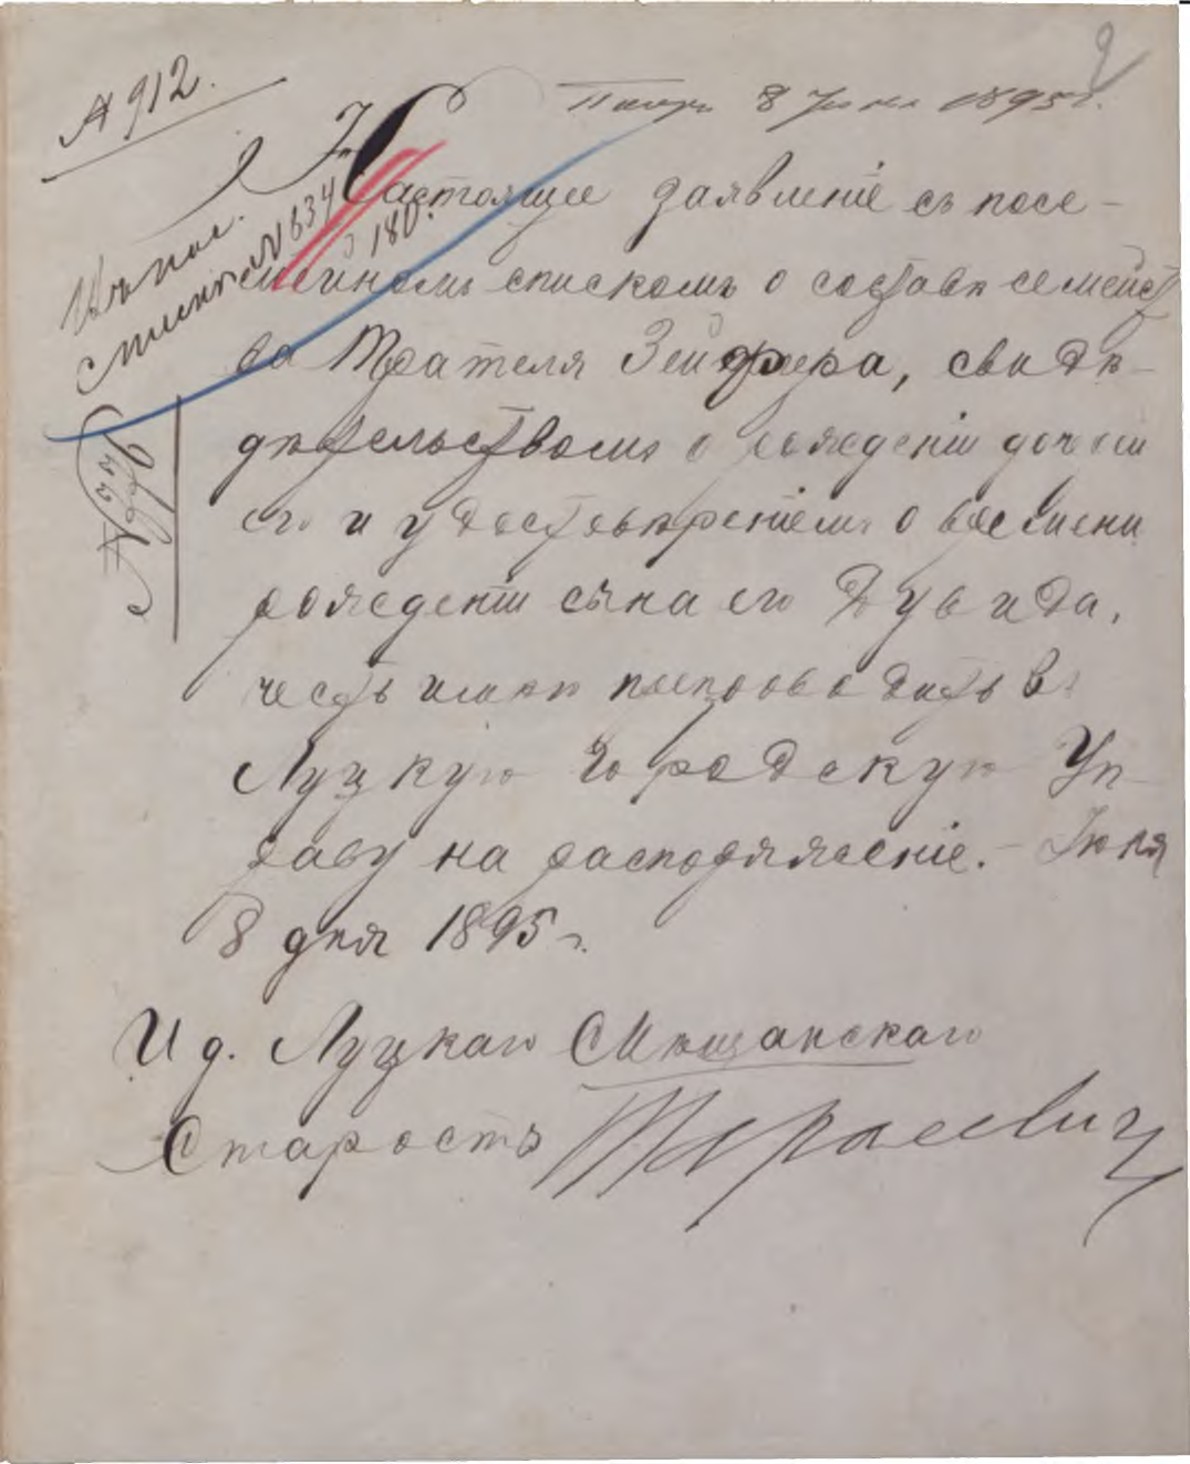 № 912.
8 Июля 1895 г.
Настоящее заявленіе съ посе-
мейномъ спискомъ о составѣ семейст
ва Зейфера, свидѣ-
дѣтельствомъ о рожденіи дочери
его и удостовѣреніемъ о времени
рожденіи сына его Дувида,
честь имѣю препроводить въ
Луцкую Городскую Уп-
раву на распоряженіе. - Іюля
8 дня 1895 г.
И д. Луцкаго Мѣщанскаго
Староста Тарасевич